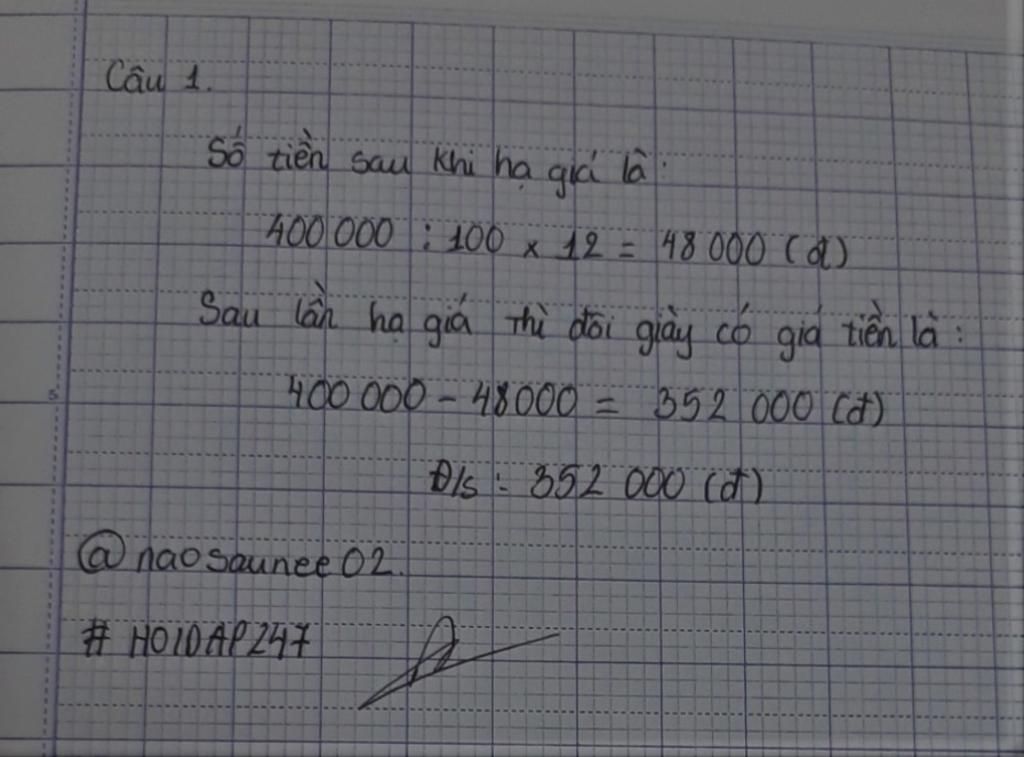 Câu 1.
Số tiền sau khi hạ giá là:
400 000 : 100 x 12 = 48 000 (đ)
Sau lần hạ giá thì đôi giày có giá tiền là:
400 000 - 48000 = 352 000 (đ)
Đ/s: 352 000 (đ)
@naosaunee02.
# HOIDAP247